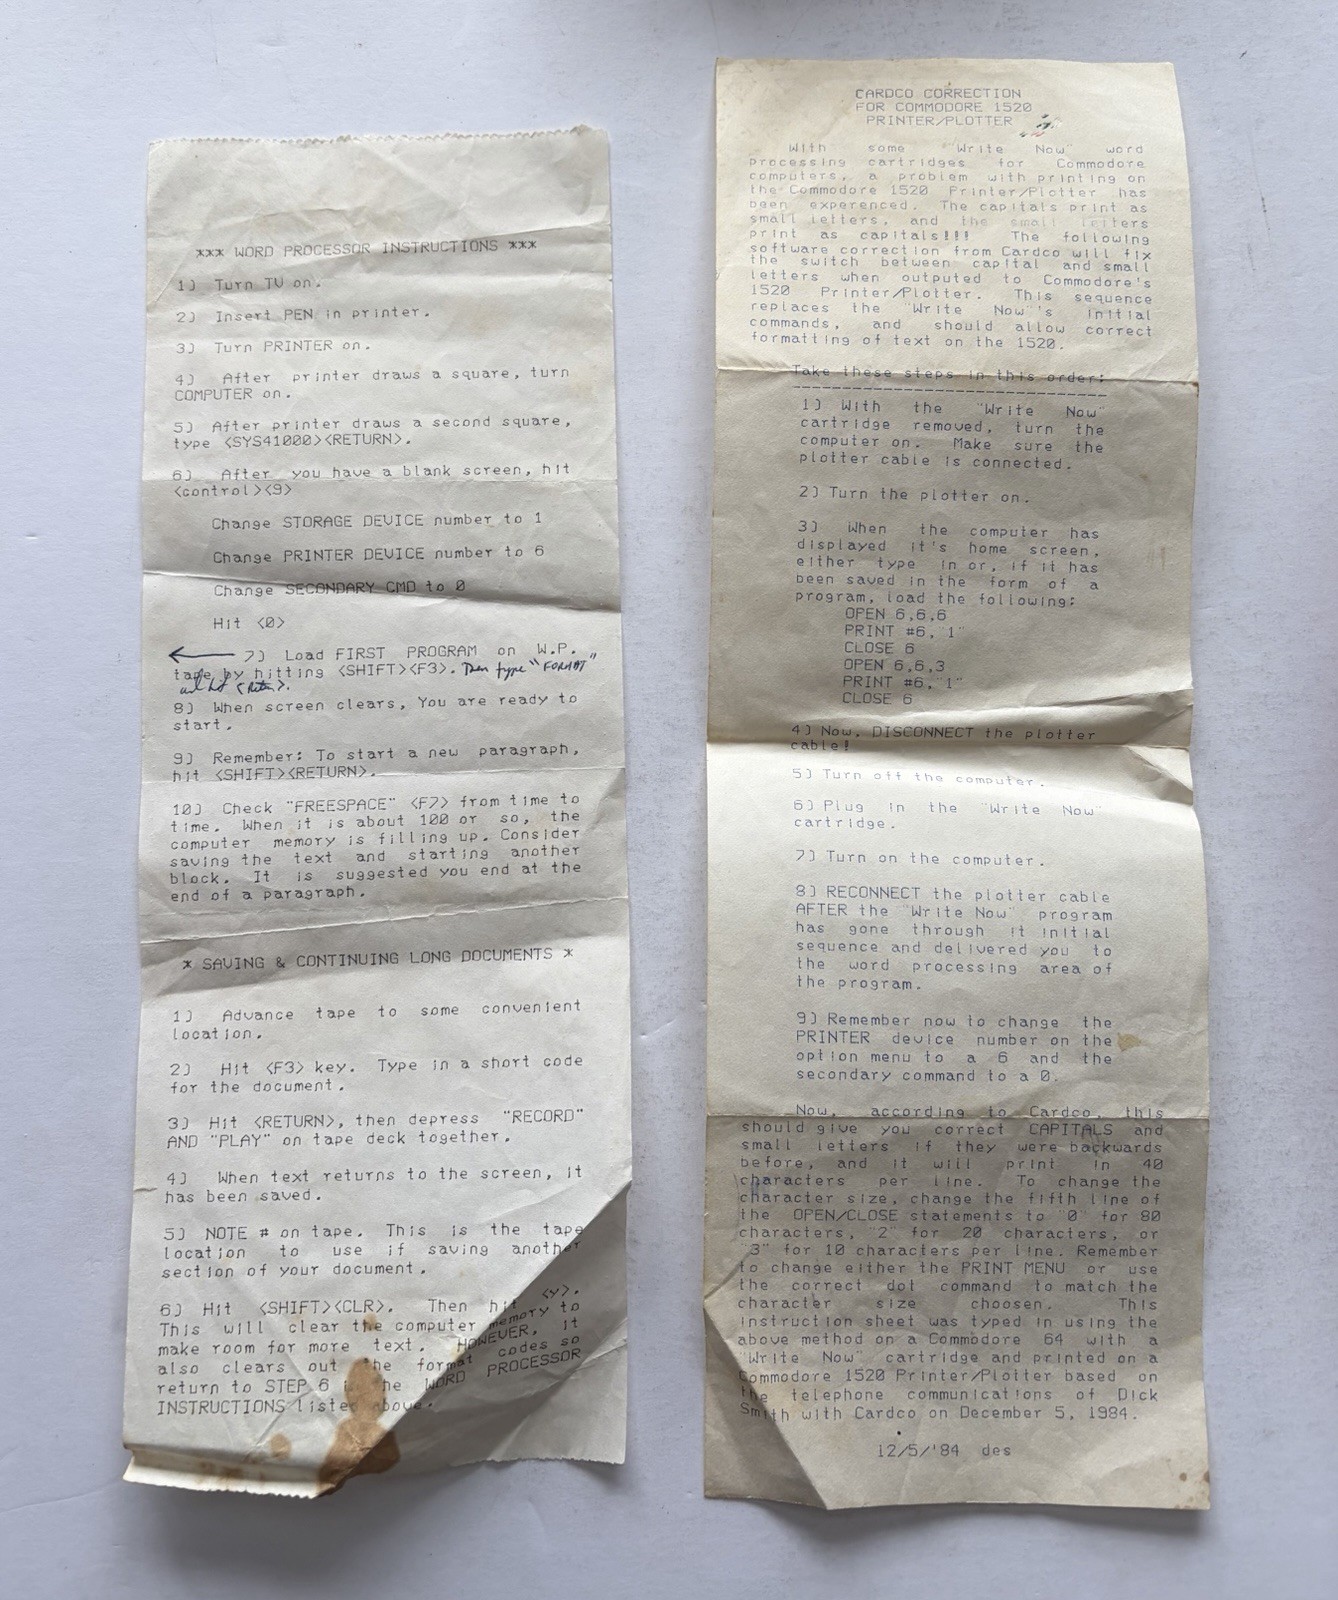 *** WORD PROCESSOR INSTRUCTIONS ***
1) Turn TV on.
2) Insert PEN in printer.
3) Turn PRINTER on.
4) After printer draws a square, turn
COMPUTER on.
5) After printer draws a second square,
type <SYS41000><RETURN>.
6) After you have a blank screen, hit
<control><9>
Change STORAGE DEVICE number to 1
Change PRINTER DEVICE number to 6
Change SECONDARY CMD to 0
Hit <0>
7) Load FIRST PROGRAM on W.P.
tape by hitting <SHIFT><F3>. Then type "FORMAT"
and hit <Return>.
8) When screen clears, You are ready to
start.
9) Remember: To start a new paragraph,
hit <SHIFT><RETURN>.
10) Check "FREESPACE" <F7> from time to
time. When it is about 100 or so, the
computer memory is filling up. Consider
saving the text and starting another
block. It is suggested you end at the
end of a paragraph.
* SAVING & CONTINUING LONG DOCUMENTS *
1) Advance tape to some convenient
location.
2) Hit <F3> key. Type in a short code
for the document.
3) Hit <RETURN>, then depress "RECORD"
AND "PLAY" on tape deck together.
4) When text returns to the screen, it
has been saved.
5) NOTE # on tape. This is the tape
location to use if saving another
section of your document.
6) Hit <SHIFT><CLR>. Then hit <y>.
This will clear the computer memory to
make room for more text. HOWEVER, it
also clears out the format codes so
return to STEP 6 in the WORD PROCESSOR
INSTRUCTIONS listed above.
CARDCO CORRECTION
FOR COMMODORE 1520
PRINTER/PLOTTER
With some "Write Now" word
processing cartridges for Commodore
computers, a problem with printing on
the Commodore 1520 Printer/Plotter has
been experenced. The capitals print as
small letters, and the small letters
print as capitals!!! The following
software correction from Cardco will fix
the switch between capital and small
letters when outputed to Commodore's
1520 Printer/Plotter. This sequence
replaces the "Write Now"'s initial
commands, and should allow correct
formatting of text on the 1520.
Take these steps in this order:
-------------------------------
1) With the "Write Now"
cartridge removed, turn the
computer on. Make sure the
plotter cable is connected.
2) Turn the plotter on.
3) When the computer has
displayed it's home screen,
either type in or, if it has
been saved in the form of a
program, load the following:
OPEN 6,6,6
PRINT #6,"1"
CLOSE 6
OPEN 6,6,3
PRINT #6,"1"
CLOSE 6
4) Now, DISCONNECT the plotter
cable!
5) Turn off the computer.
6) Plug in the "Write Now"
cartridge.
7) Turn on the computer.
8) RECONNECT the plotter cable
AFTER the "Write Now" program
has gone through it initial
sequence and delivered you to
the word processing area of
the program.
9) Remember now to change the
PRINTER device number on the
option menu to a 6 and the
secondary command to a 0.
Now, according to Cardco, this
should give you correct CAPITALS and
small letters if they were backwards
before, and it will print in 40
characters per line. To change the
character size, change the fifth line of
the OPEN/CLOSE statements to "0" for 80
characters, "2" for 20 characters, or
"3" for 10 characters per line. Remember
to change either the PRINT MENU or use
the correct dot command to match the
character size choosen. This
instruction sheet was typed in using the
above method on a Commodore 64 with a
"Write Now" cartridge and printed on a
Commodore 1520 Printer/Plotter based on
the telephone communications of Dick
Smith with Cardco on December 5, 1984.
12/5/'84 des